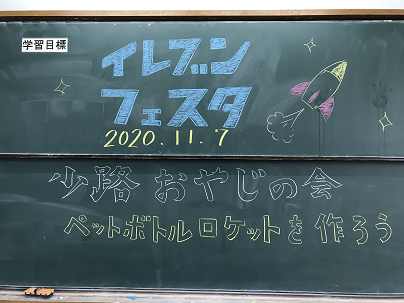 学習目標
イレブン
フェスタ
2020.11.7
少路 おやじの会
ペットボトルロケットを作ろう